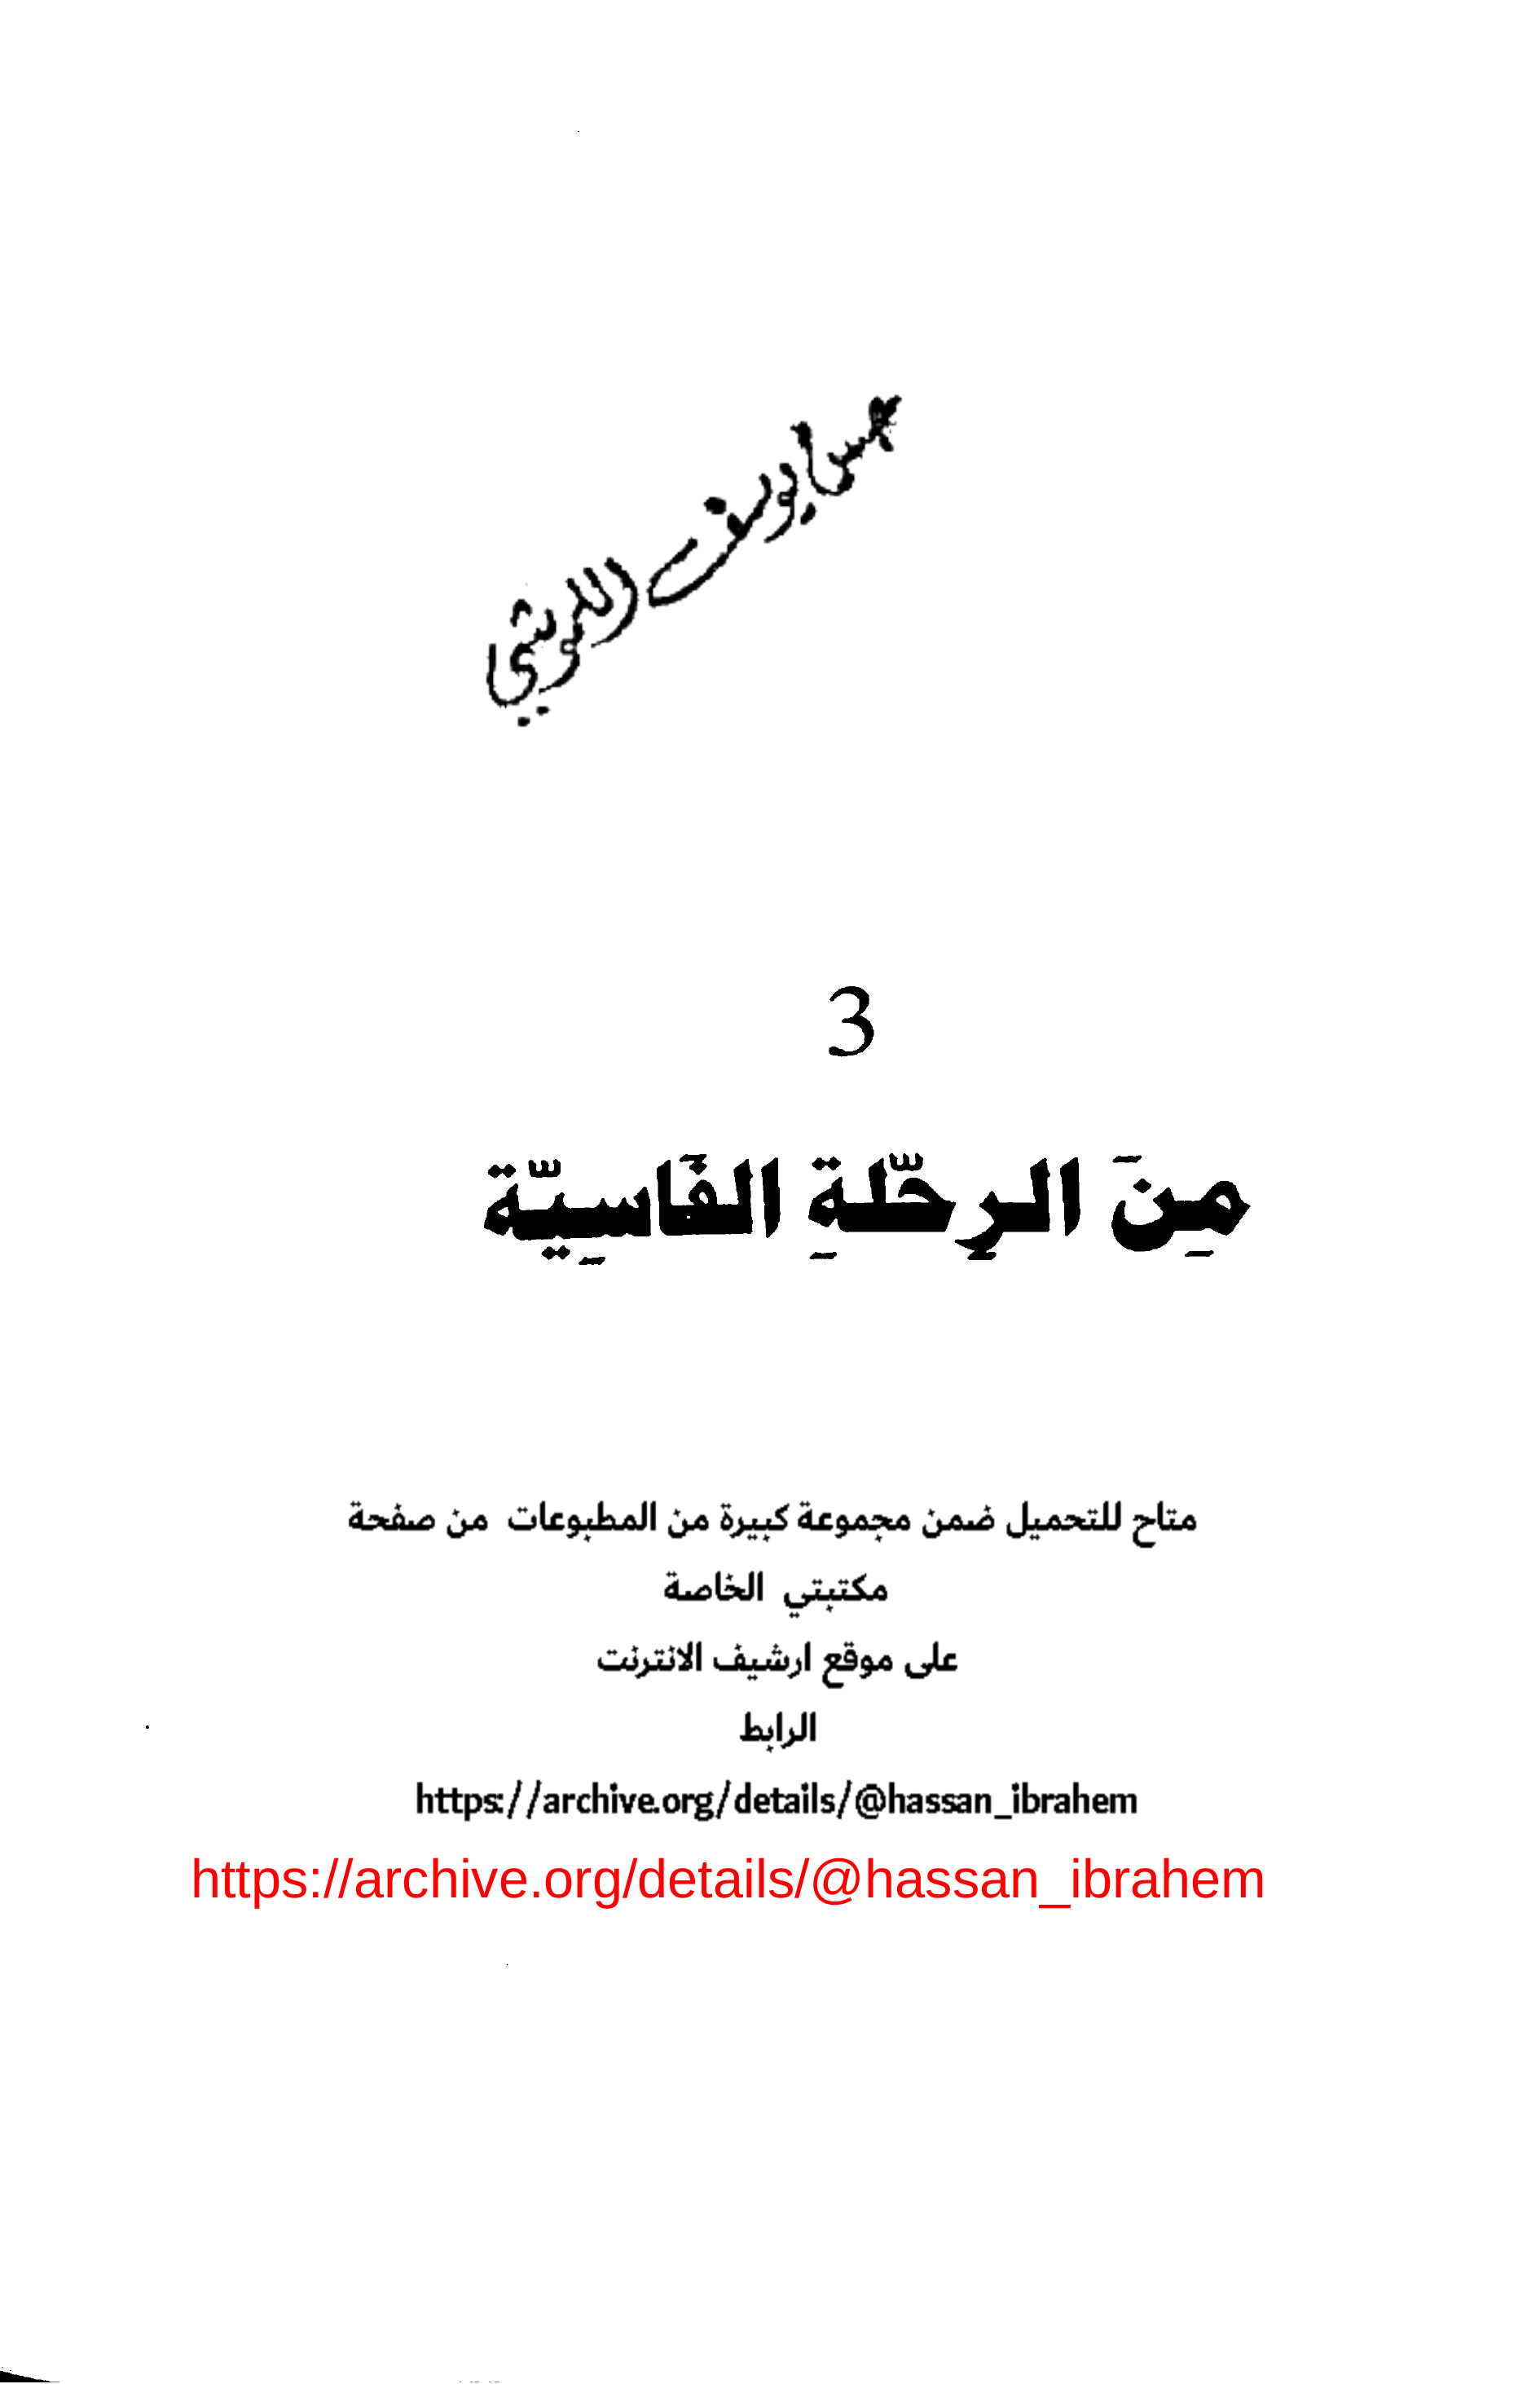 يوسف
3
مِنَ الرِحّلةِ الفَاسِيّة
متاح للتحميل ضمن مجموعة كبيرة من المطبوعات من صفحة
مكتبتي الخاصة
على موقع ارشيف الانترنت
الرابط
https://archive.org/details/@hassan_ibrahem
https://archive.org/details/@hassan_ibrahem